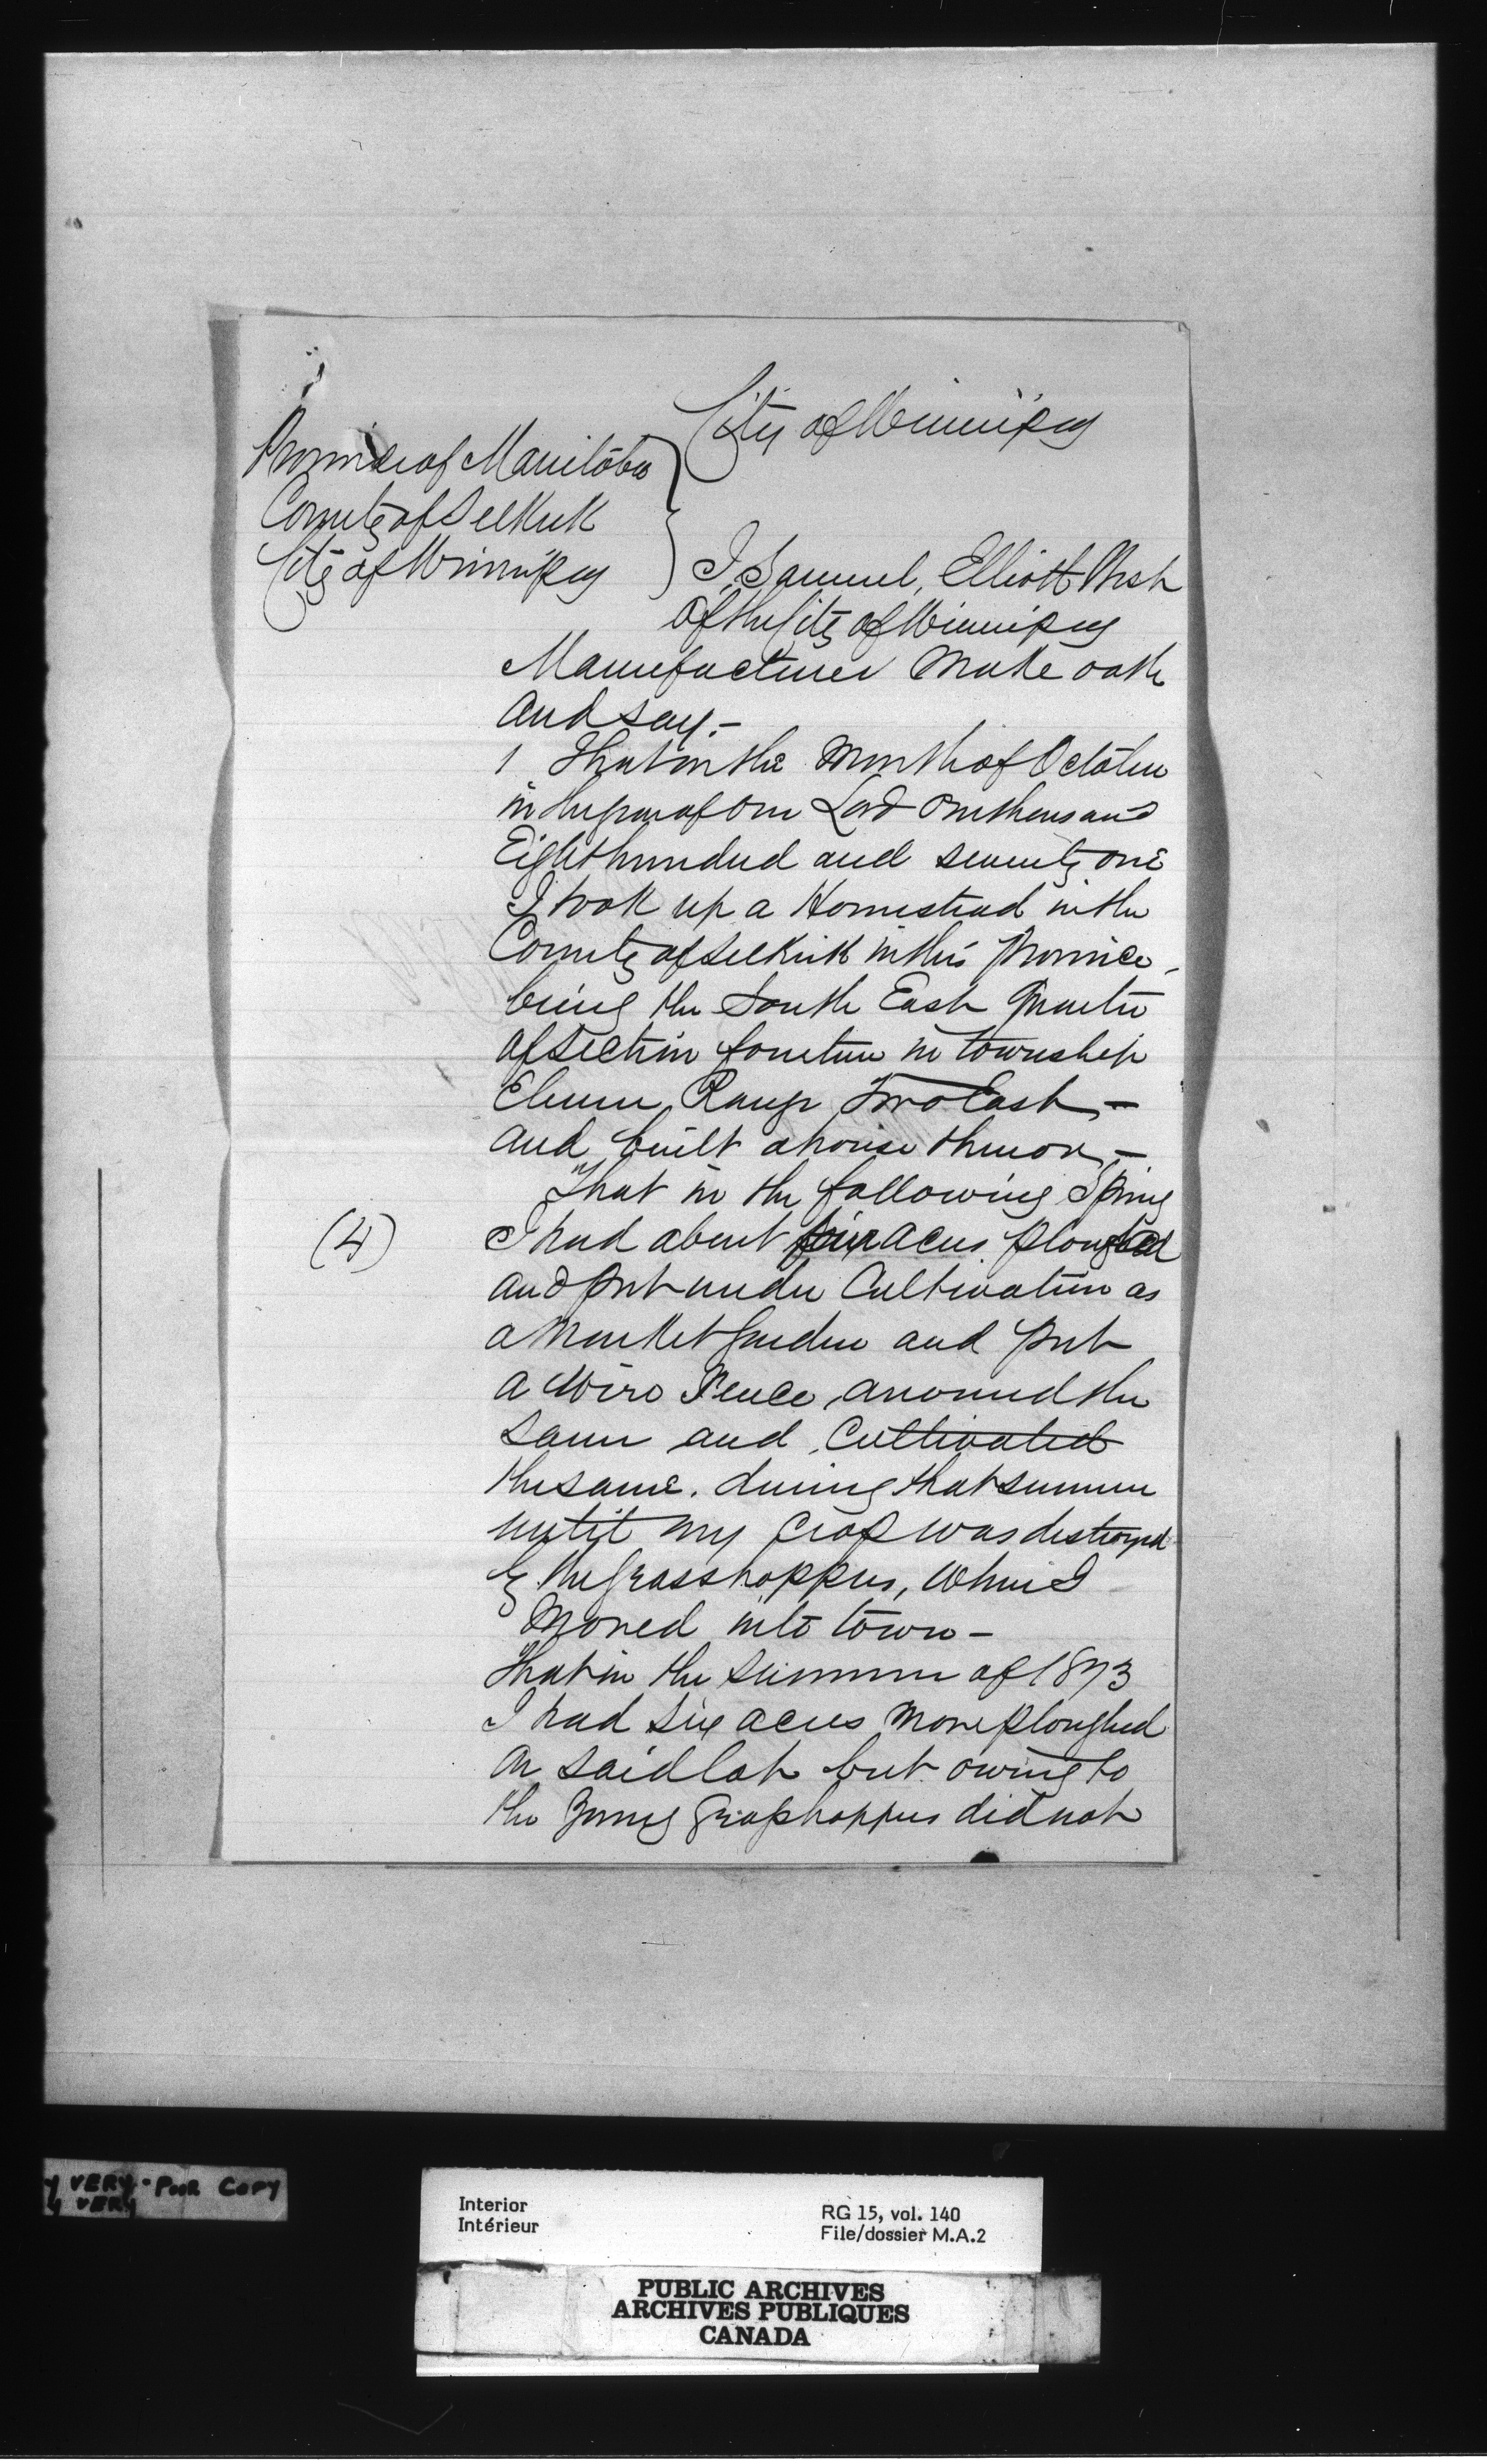 City of Winnipeg
Province of Manitoba
County of Selkirk
City of Winnipeg
I, Samuel, Elliott West
of the City of Winnipeg
Manufacturer make oath
and say.—
1 That in the month of October
in the year of our Lord one thousand
Eight hundred and seventy one
I took up a Homestead in the
County of Selkirk in this Province,
being the South East Quarter
of section fourteen in township
Eleven, Range Two East, —
and built a house thereon, —
That in the following Spring
(4) I had about four acres ploughed
and put under Cultivation as
a market garden and put
a wire Fence around the
same and, Cultivated
the same. during that summer
until my crop was destroyed
by the grasshoppers, when I
moved into town —
That in the summer of 1873
I had six acres more ploughed
on said lot but owing to
the young grasshoppers did not
y VERY - POOR COPY
y VERY
Interior
Intérieur
RG 15, vol. 140
File/dossier M.A.2
PUBLIC ARCHIVES
ARCHIVES PUBLIQUES
CANADA